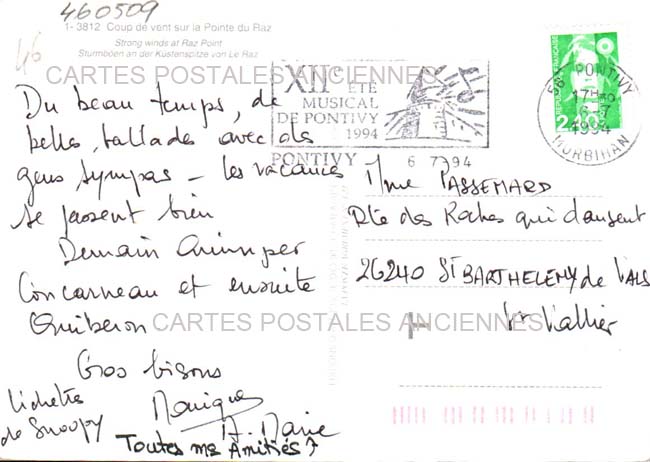 460509
46
1- 3812 Coup de vent sur la Pointe du Raz
Strong winds at Raz Point
Sturmböen an der Küstenspitze von Le Raz
CARTES POSTALES ANCIENNES
XIIe ÉTÉ
MUSICAL
DE PONTIVY
1994
PONTIVY 6 7 94
56 PONTIVY
17H
6-7
1994
MORBIHAN
2,40
Du beau temps, de
belles ballades avec des
gens sympas - les vacances
se passent bien
Demain Quimper
Concarneau et ensuite
Quiberon
Gros bisous
Monique
A. Marie
Lichettes
de Snoopy
Toutes mes Amitiés
Mme PASSEMARD
Rte des Roches qui dansent
26240 ST BARTHELEMY de VALS
St Vallier
CARTES POSTALES ANCIENNES